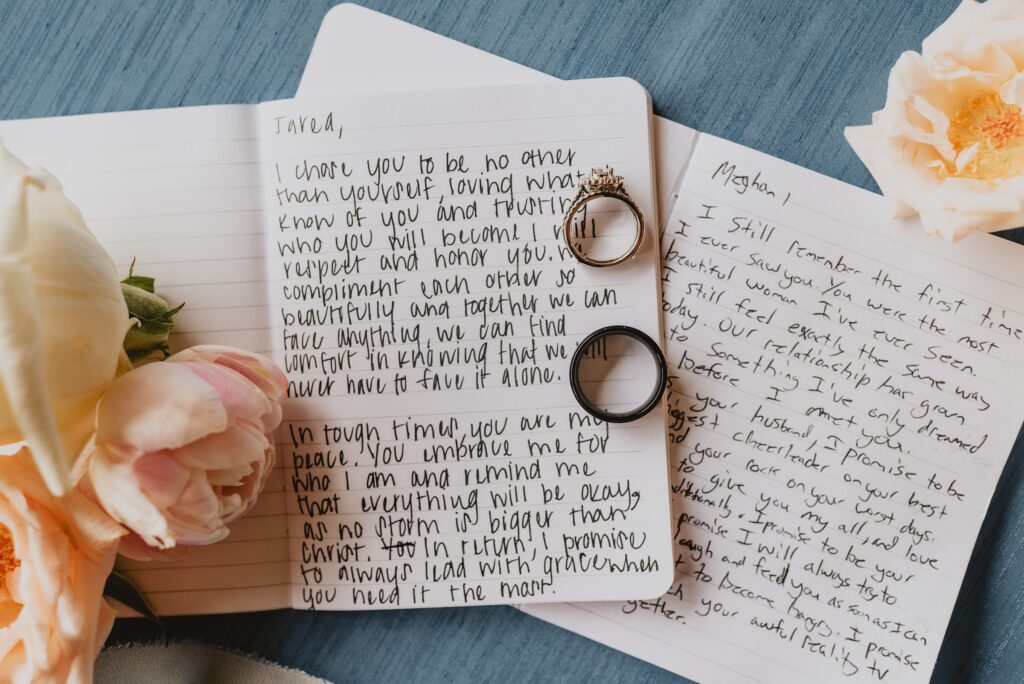 Jared,
I chose you to be no other
than yourself, loving what
know of you and trusting
who you will become I
respect and honor you.
compliment each other so
beautifully and together we can
face anything, we can find
comfort in knowing that we
never have to face it alone.
In tough times, you are my
peace. You embrace me for
who I am and remind me
that everything will be okay,
as no storm is bigger than
christ. In return, I promise
to always lead with grace when
you need it the most.
Meghan,
I still remember the first time
I ever saw you. You were the most
beautiful woman I've ever seen.
I still feel exactly the same way
today. Our relationship has grown
to something I've only dreamed
before I met you.
your husband, I promise to be
biggest cheerleader on your best
your rock on your worst days.
to give you my all, and love
I promise to be your
promise I will always try to
laugh and feed you as soon as I can
to become hangry. I promise
your awful reality tv
together.